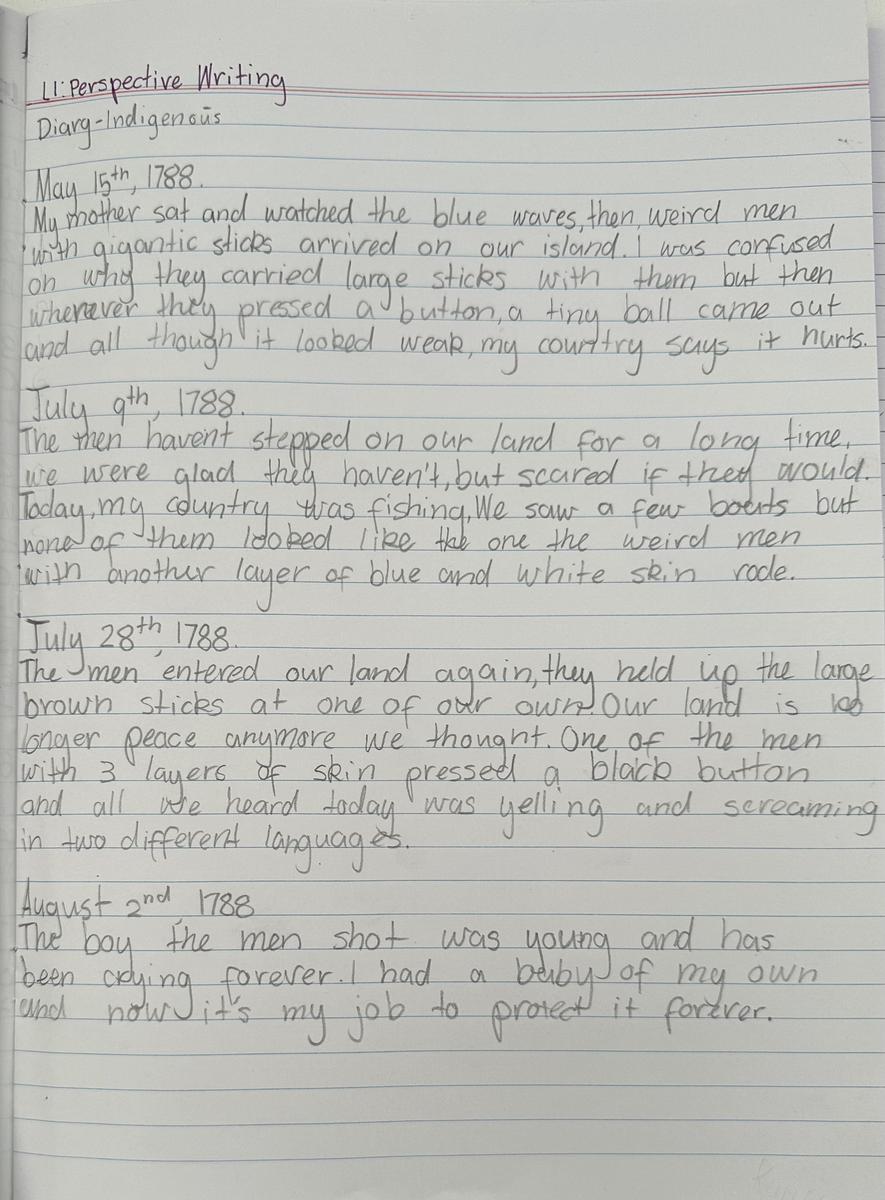 LI: Perspective Writing
Diary-Indigenous
May 15th, 1788.
My mother sat and watched the blue waves, then, weird men
with gigantic sticks arrived on our island. I was confused
on why they carried large sticks with them but then
whenever they pressed a button, a tiny ball came out
and all though it looked weak, my country says it hurts.
July 9th, 1788.
The men havent stepped on our land for a long time,
we were glad they haven't, but scared if they would.
Today, my country was fishing, We saw a few boats but
none of them looked like the one the weird men
with another layer of blue and white skin rode.
July 28th, 1788.
The men entered our land again, they held up the large
brown sticks at one of our own. Our land is no
longer peace anymore we thought. One of the men
with 3 layers of skin pressed a black button
and all we heard today was yelling and screaming
in two different languages.
August 2nd 1788
The boy the men shot was young and has
been crying forever. I had a baby of my own
and now it's my job to protect it forever.